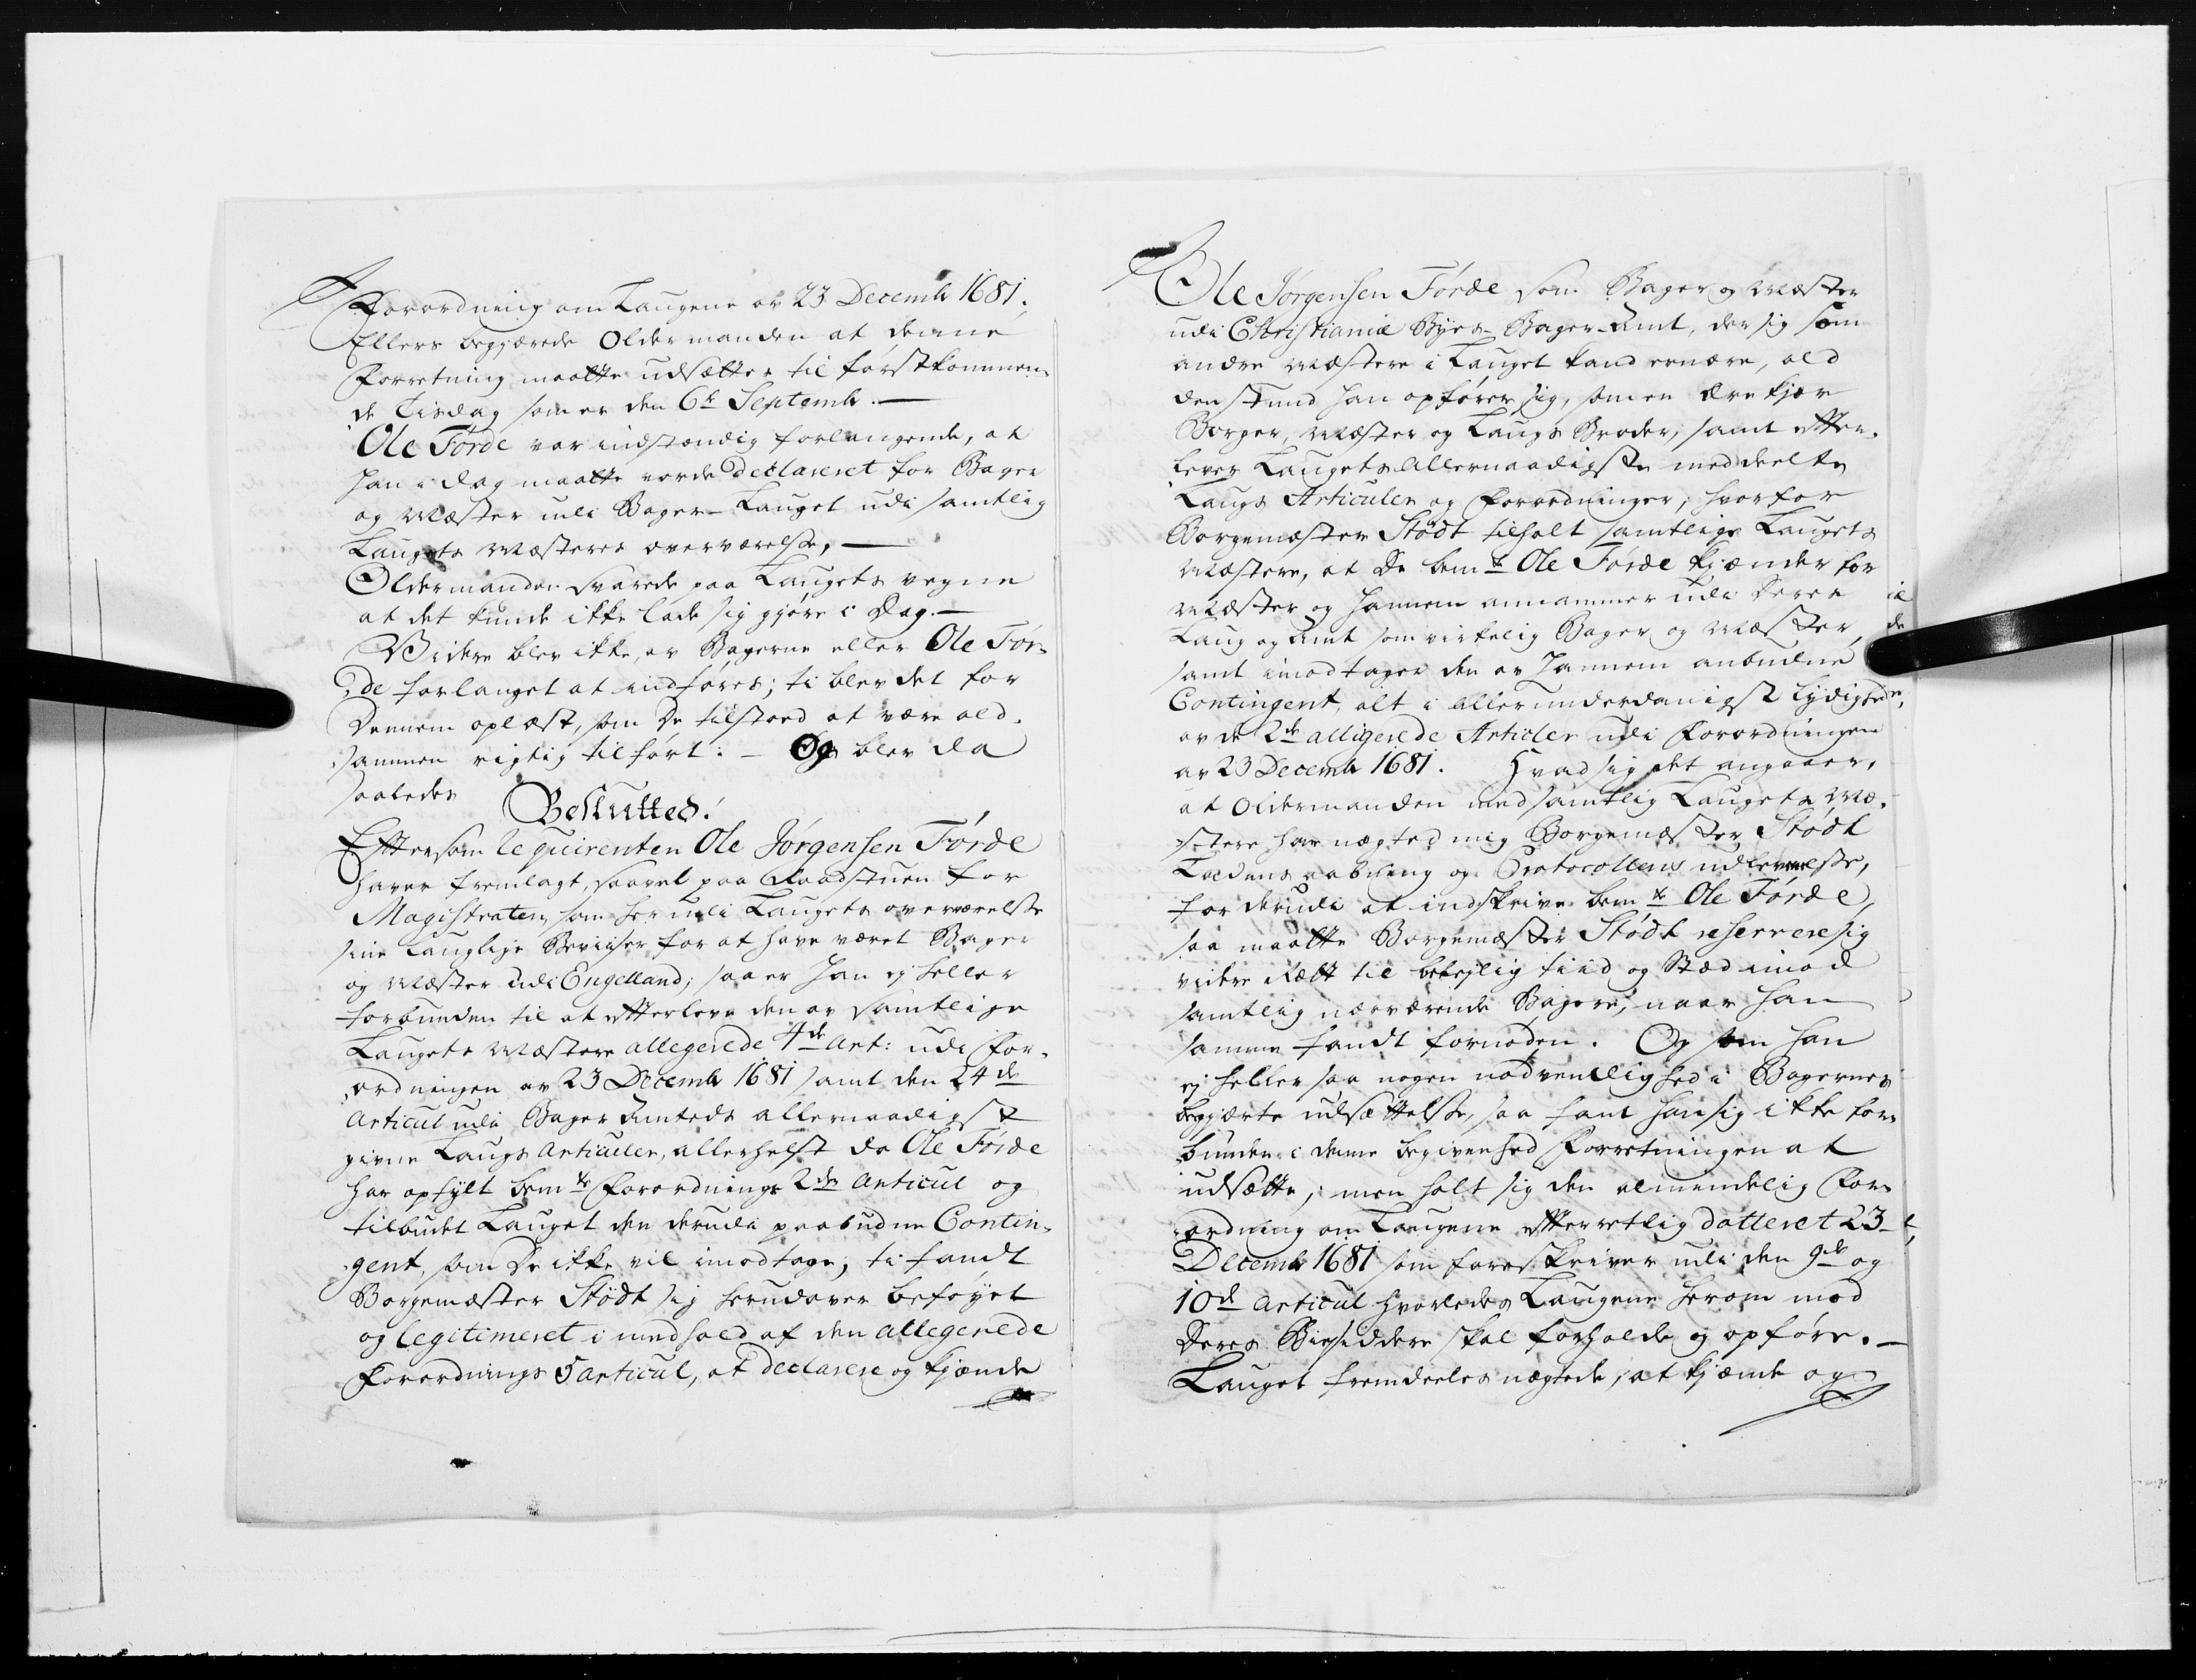 Forordning om Laugene av 23 Decemb 1681.
Ellers begjærede Oldermanden at denne
Forretning maatte udsættes til førstkommen-
de Tisdag som er den 6te Septemb. —
Ole Förde var indstændig forlangende, at
han i dag maatte vorde declareret for Bager
og Mæster udi Bager-Lauget udi samtlig
Laugets Mæsteres overværelse, —
Oldermanden svarede paa Laugets vegne
at det kunde ikke lade sig gjøre i Dag. —
Vidre blev ikke, av Bagerne eller Ole För-
de forlanget at indføres; ti blev det for
Dennem oplæst, som De tilstoed at være ald-
sammen rigtig tilført: — Og blev da
saaledes
Besluttes:
Eftersom Requirenten Ole Jörgensen Förde
haver fremlagt, saavel paa Raadstuen for
Magistraten, som her udi Laugets overværelse
sine lauglige Beviiser for at have været Bager
og Mæster udi Engelland; saa er han ej heller
forbunden til at efterleve den av samtlige
Laugets Mæstere allegerede 4de Art: udi For-
ordningen av 23 Decemb 1681 samt den 24de
Articul udi Bager Amtets allernaadigst
givne Laugs Articuler, allerhelst da Ole Förde
har opfylt bemte Forordnings 2den Articul og
tilbudet Lauget den derudi paabudne Contin-
gent, som De ikke vil imodtage; ti fandt
Borgemæster Stödt sig herudover beføyet
og legitimeret i medhold af den allegerede
Forordnings 5 articul, at declarere og kjænde
Ole Jörgensen Förde som Bager og Mæster
udi Christianiæ Byes-Bager-Amt, der sig som
andre Mæstere i Lauget kand ernære, ald
den stund han opfører sig, som en ærekjær
Borger, Mæster og Laugs Broder, samt efter-
lever Laugets Allernaadigste meddeelte
Laugs Articuler og Forordninger, hvorfor
Borgemæster Stödt tilholt samtlige Laugets
Mæstere, at De bemte Ole Förde kjænder for
Mæster og hannem annammer udi Deres
Laug og Amt som virkelig Bager og Mæster,
samt imodtager den av hannem anbudne
Contingent, alt i allerunderdanigst lydighede,
av de 2de alligerede Articler udi Forordningen
av 23 Decemb 1681. Hvad sig det angaaer,
at Oldermanden med samtlig Laugets Mæ-
stere har nægted mig Borgemæster Stödt
Ladens aabning og Protocollens udleverelse,
for derudi at indskrive bemte Ole Förde,
saa maatte Borgemæster Stödt reservere sig
vidre Rætt til belejlig tiid og Stæd imod
samtlig nærværende Bagere, naar han
samme fandt fornøden. Og som han
ej heller saa nogen nødvendighed i Bagernes
begjærte udsættelse, saa fant han sig ikke for-
bunden i denne begivenhed Forretningen at
udsætte; men holt sig den almindelig For-
ordning om Laugene efterretlig datteret 23
Decemb 1681 som foreskriver udi den 9de og
10de Articul hvorledes Laugene herom mod
Deres Biesiddere skal forholde og opføre. —
Lauget fremdeeles nægtede, at kjænde og